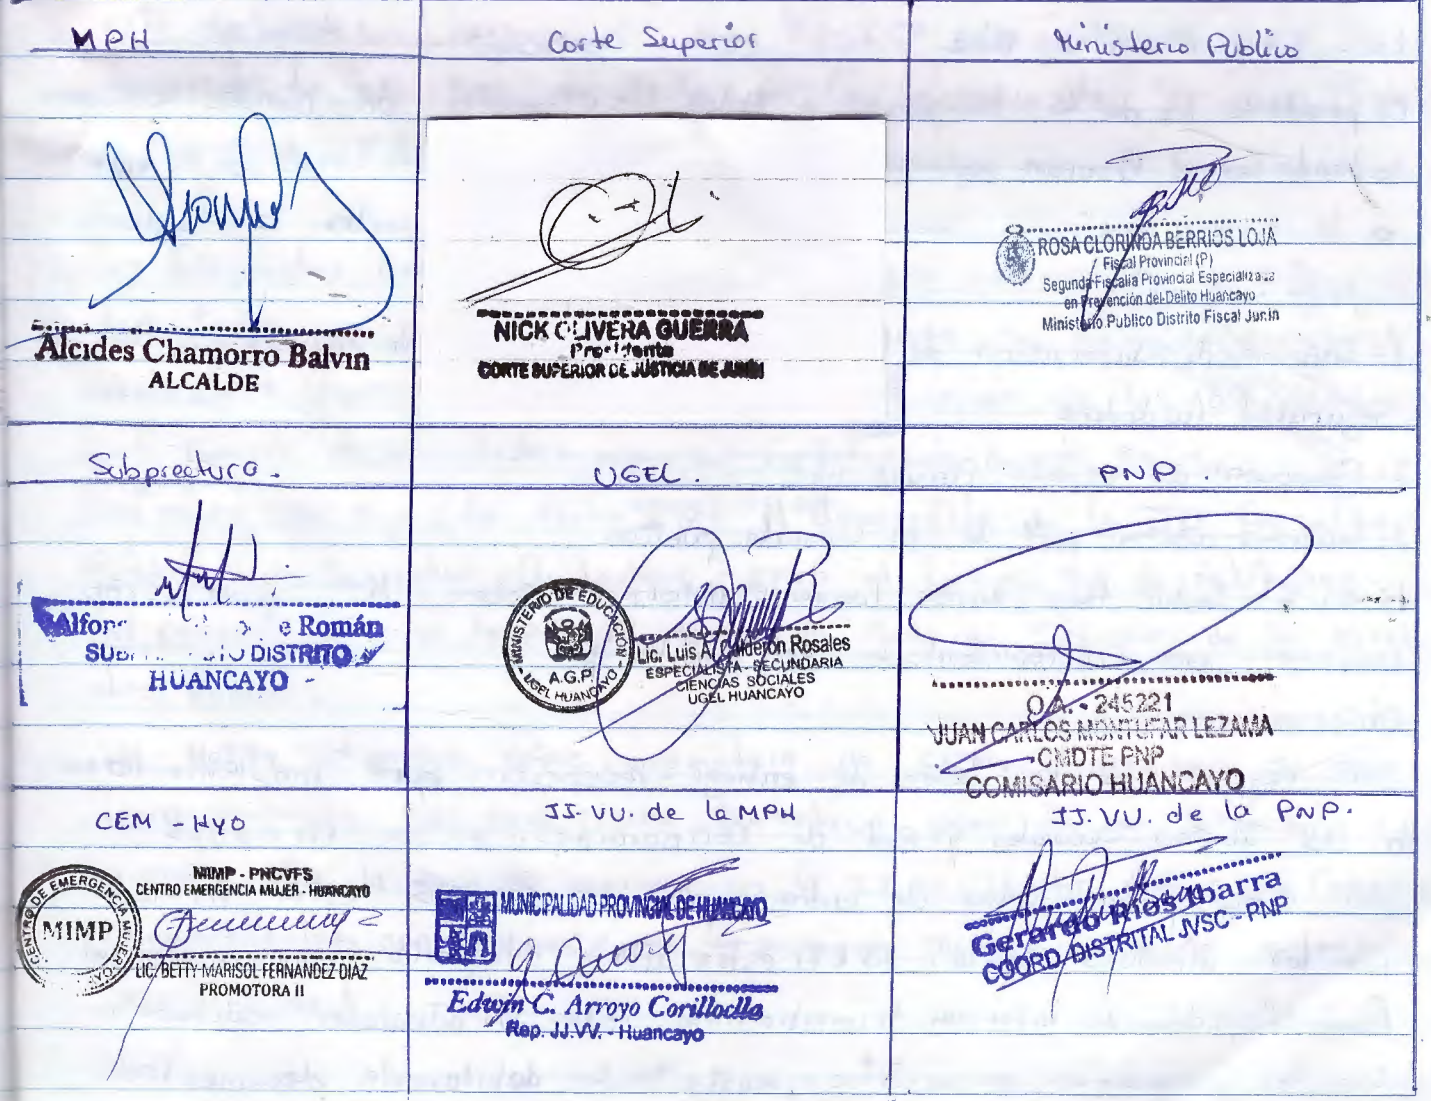 MPH
Corte Superior
Ministerio Publico
Alcides Chamorro Balvin
ALCALDE
NICK OLIVERA GUERRA
Presidente
CORTE SUPERIOR DE JUSTICIA DE JUNIN
ROSA CLORINDA BERRIOS LOJA
Fiscal Provincial (P)
Segunda Fiscalia Provincial Especializada
en Prevención del Delito Huancayo
Ministerio Publico Distrito Fiscal Junin
Subprectura.
UGEL.
PNP.
Román
DISTRITO
HUANCAYO
MINISTERIO DE EDUCACIÓN
A.G.P.
UGEL HUANCAYO
Lic. Luis A. Calderón Rosales
ESPECIALISTA - SECUNDARIA
CIENCIAS SOCIALES
UGEL HUANCAYO
O.A. - 245221
JUAN CARLOS MONTUFAR LEZAMA
CMDTE PNP
COMISARIO HUANCAYO
CEM - HYO
JJ. VU. de la MPH
JJ. VU. de la PNP.
CENTRO DE EMERGENCIA MUJER
MIMP
MIMP - PNCVFS
CENTRO EMERGENCIA MUJER - HUANCAYO
LIC. BETTY MARISOL FERNANDEZ DIAZ
PROMOTORA II
MUNICIPALIDAD PROVINCIAL DE HUANCAYO
Edwin C. Arroyo Corilloclla
Rep. JJ.VV. - Huancayo
Gerardo Rios Ibarra
COORD. DISTRITAL JVSC - PNP